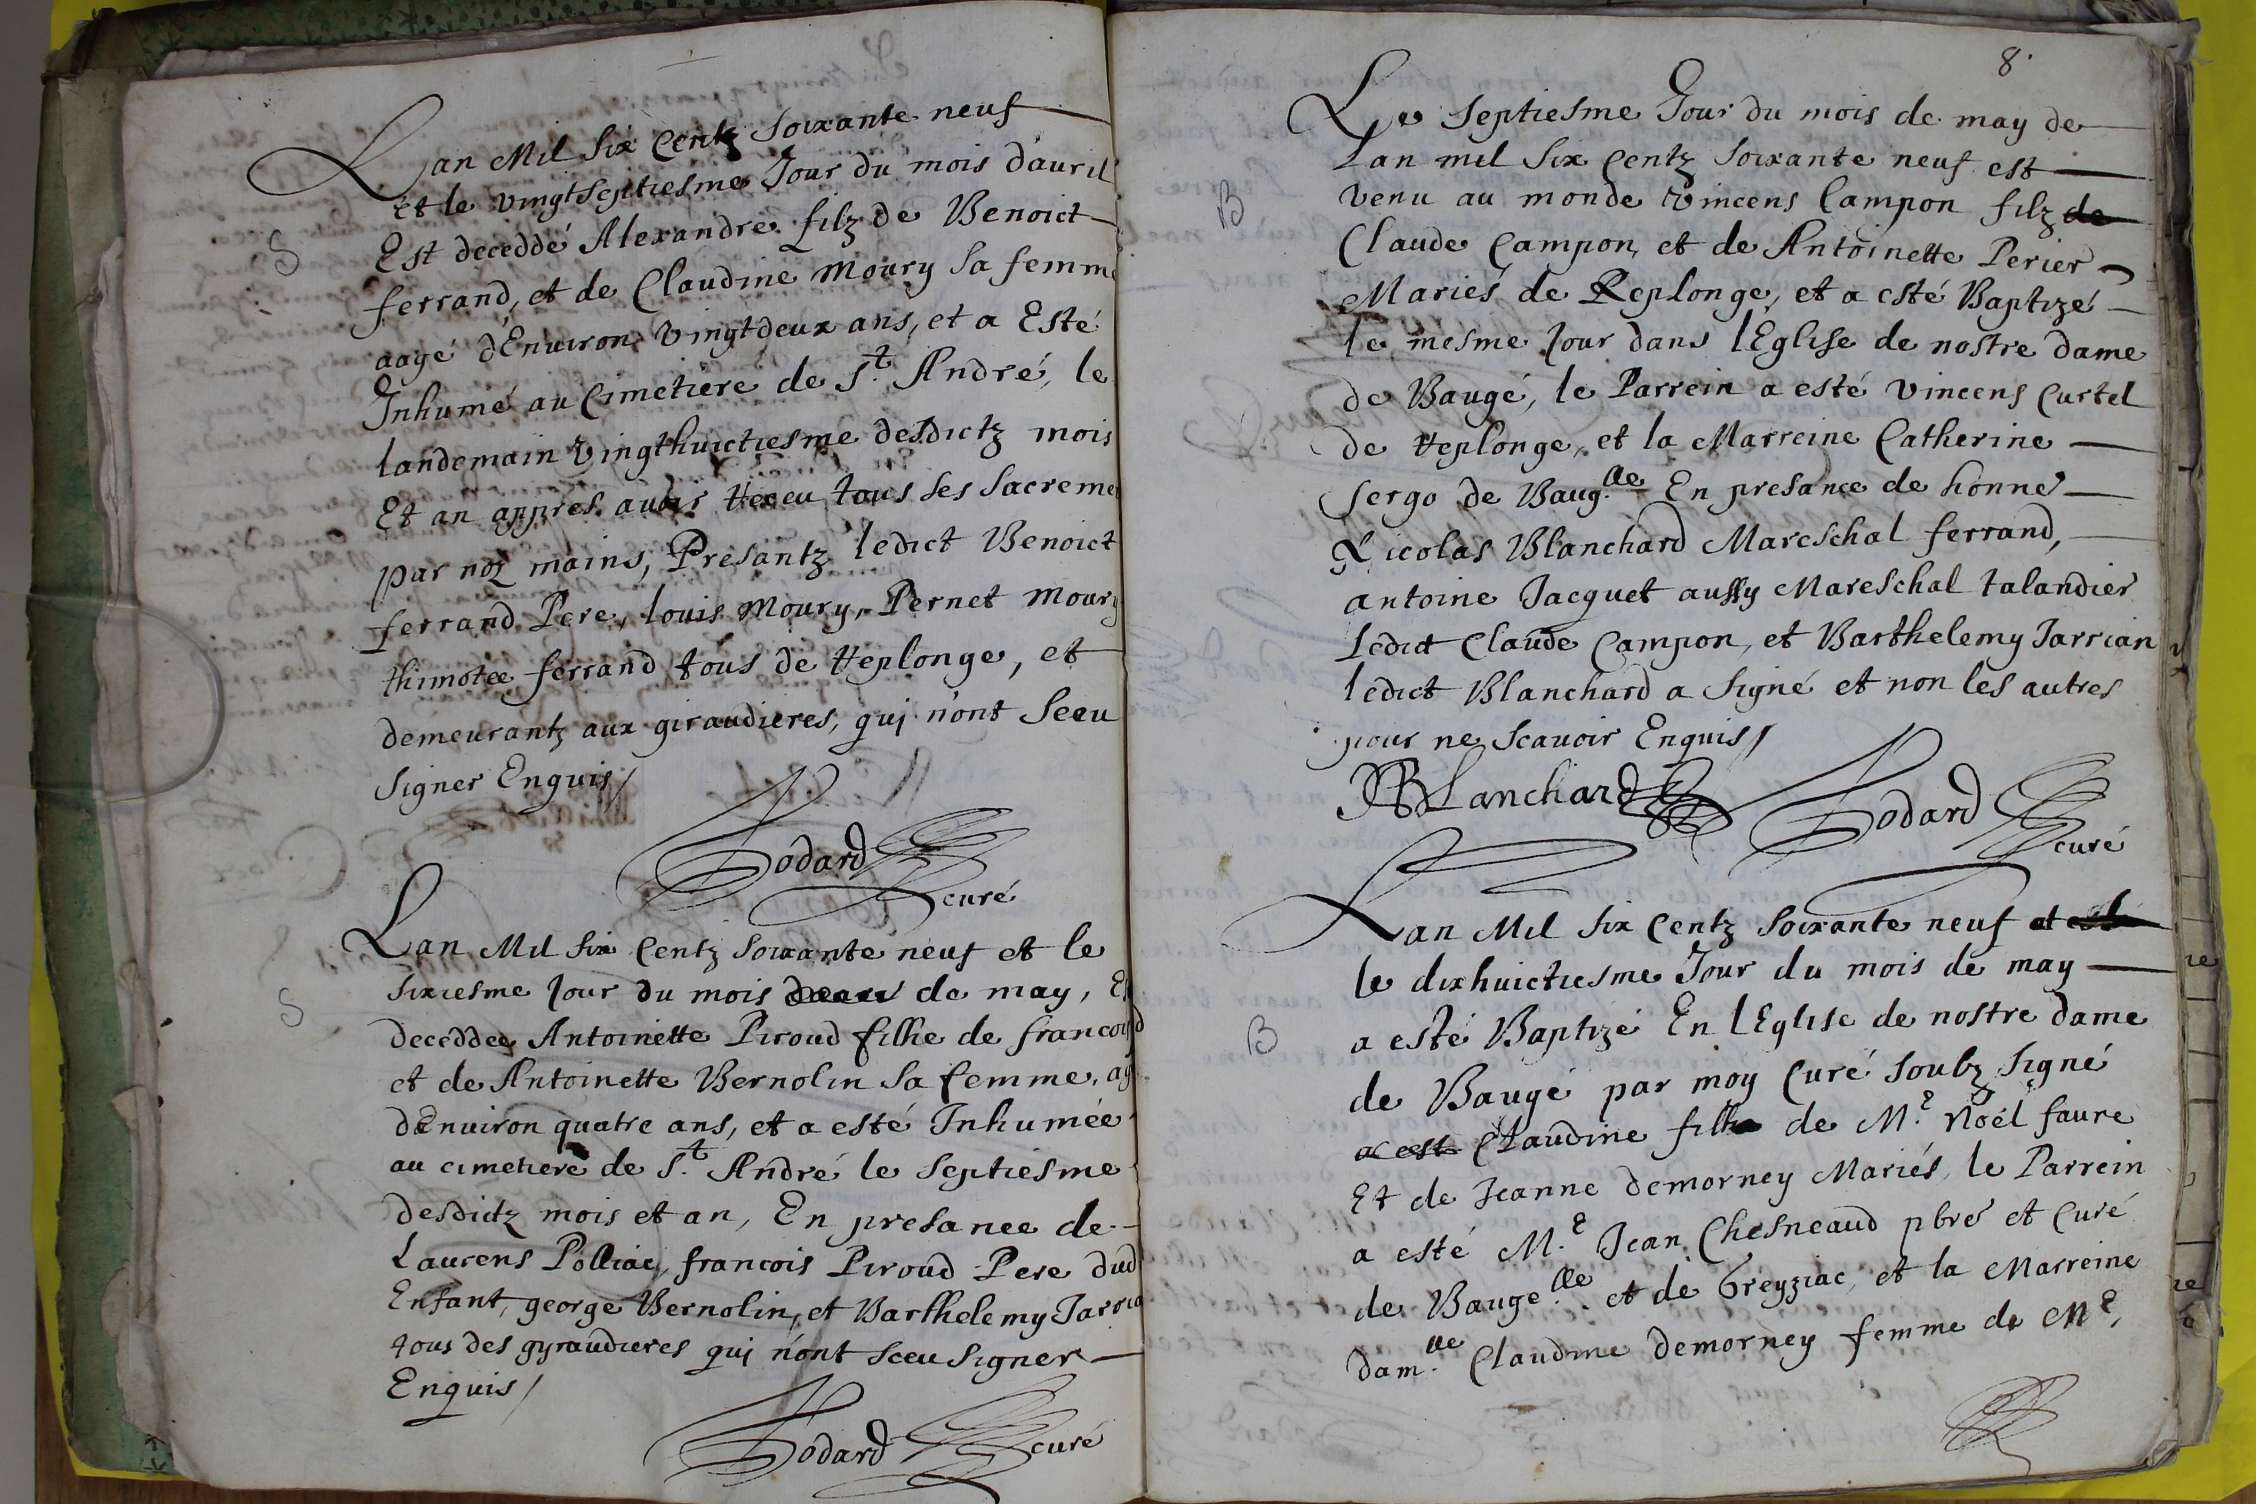 Lan Mil Six Centz Soixante neuf
et le vingtseptiesme Jour du mois dauril
S
Est deceddé Alexandre filz de Benoict
ferrand, et de Claudine Moury Sa femme
aagé dEnuiron vingtdeux ans, et a Esté
Inhumé au Cimetiere de S.t André, le
landemain vingthuictiesme desdictz mois
Et an appres auoir Receu tous ses Sacreme
par noz mains, Presantz ledict Benoict
ferrand Pere, louis Moury, Pernet Moury
thimotee ferrand tous de Replonge, et
demeurantz aux giraudieres, qui n'ont Sceu
Signer Enquis/
Godard
curé
Lan Mil Six Centz Soixante neuf et le
Sixiesme Jour du mois de may,
S
deceddee Antoinette Piroud fillie de francois
et de Antoinette Bernolin Sa femme, ag
dEnuiron quatre ans, et a esté Inhumée
au cimetiere de S.t André le Septiesme
desdictz mois et an, En presance de
Laurens Polliac, francois Piroud Pere dud
Enfant, george Bernolin, et Barthelemy Jarria
tous des gyraudieres qui n'ont sceu signer
Enquis/
Godard curé
8.
Le Septiesme Jour du mois de may de
Lan mil Six Centz Soixante neuf est
B
venu au monde Vincens Campon filz de
Claude Campon, et de Antoinette Perier
Mariés de Replonge, et a esté Baptizé
le mesme Jour dans lEglise de nostre dame
de Baugé, le Parrein a esté Vincens Curtel
de Replonge, et la Marreine Catherine
Sergo de Baug.lle En presance de honne
Nicolas Blanchard Mareschal ferrand,
antoine Jacquet aussy Mareschal talandier
Ledict Claude Campon, et Barthelemy Jarrian
ledict Blanchard a Signé et non les autres
pour ne Scauoir Enquis/
NBLanchard Godard
curé
Lan Mil Six Centz Soixante neuf et
le dixhuictiesme Jour du mois de may
B
a esté Baptizé En lEglise de nostre dame
de Baugé par moy Curé Soubz Signé
a esté Claudine fillie de M.e Noël faure
Et de Jeanne demorney Mariés, le Parrein
a esté M.e Jean Chesneaud pbre et Curé
de Bauge.lle et de Greyziac, et la Marreine
dam.lle Claudine demorney femme de M.e